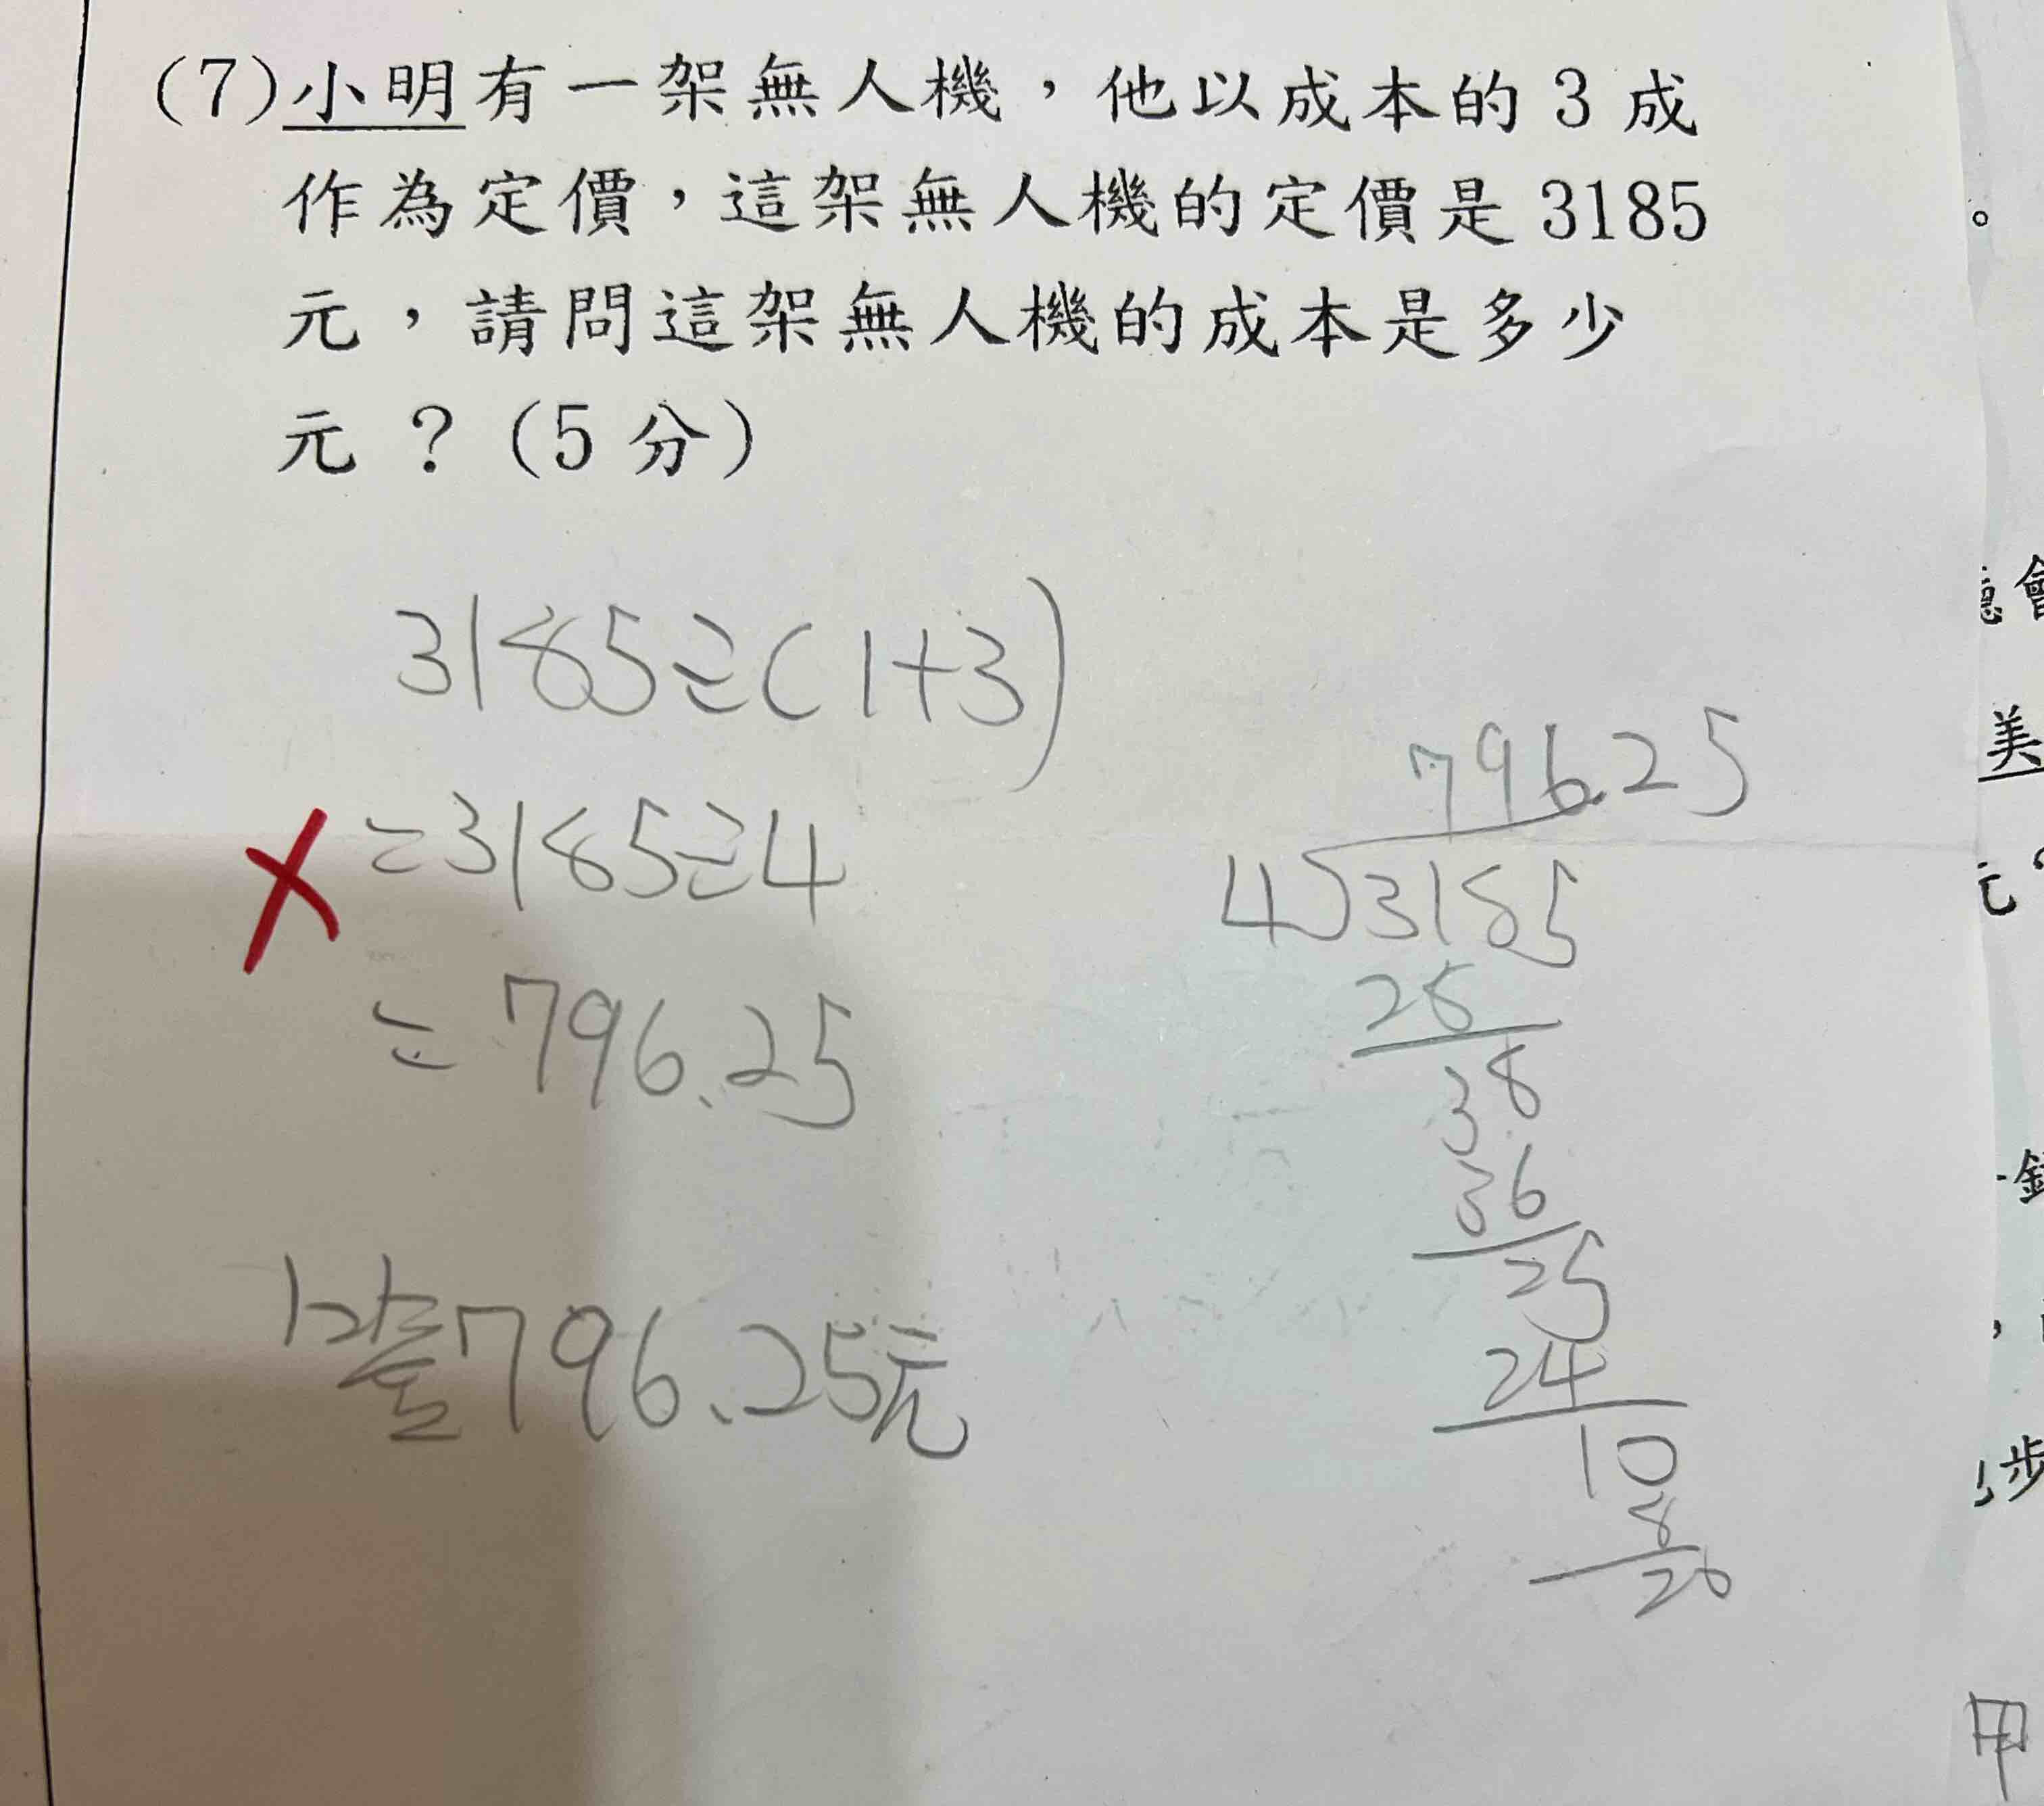 (7)小明有一架無人機，他以成本的3成
作為定價，這架無人機的定價是3185
元，請問這架無人機的成本是多少
元？(5分)
3185÷(1+3)
=3185÷4
=796.25
796.25
4
3185
28
38
36
25
24
10
8
20
答796.25元
。
會
美
元
步
甲